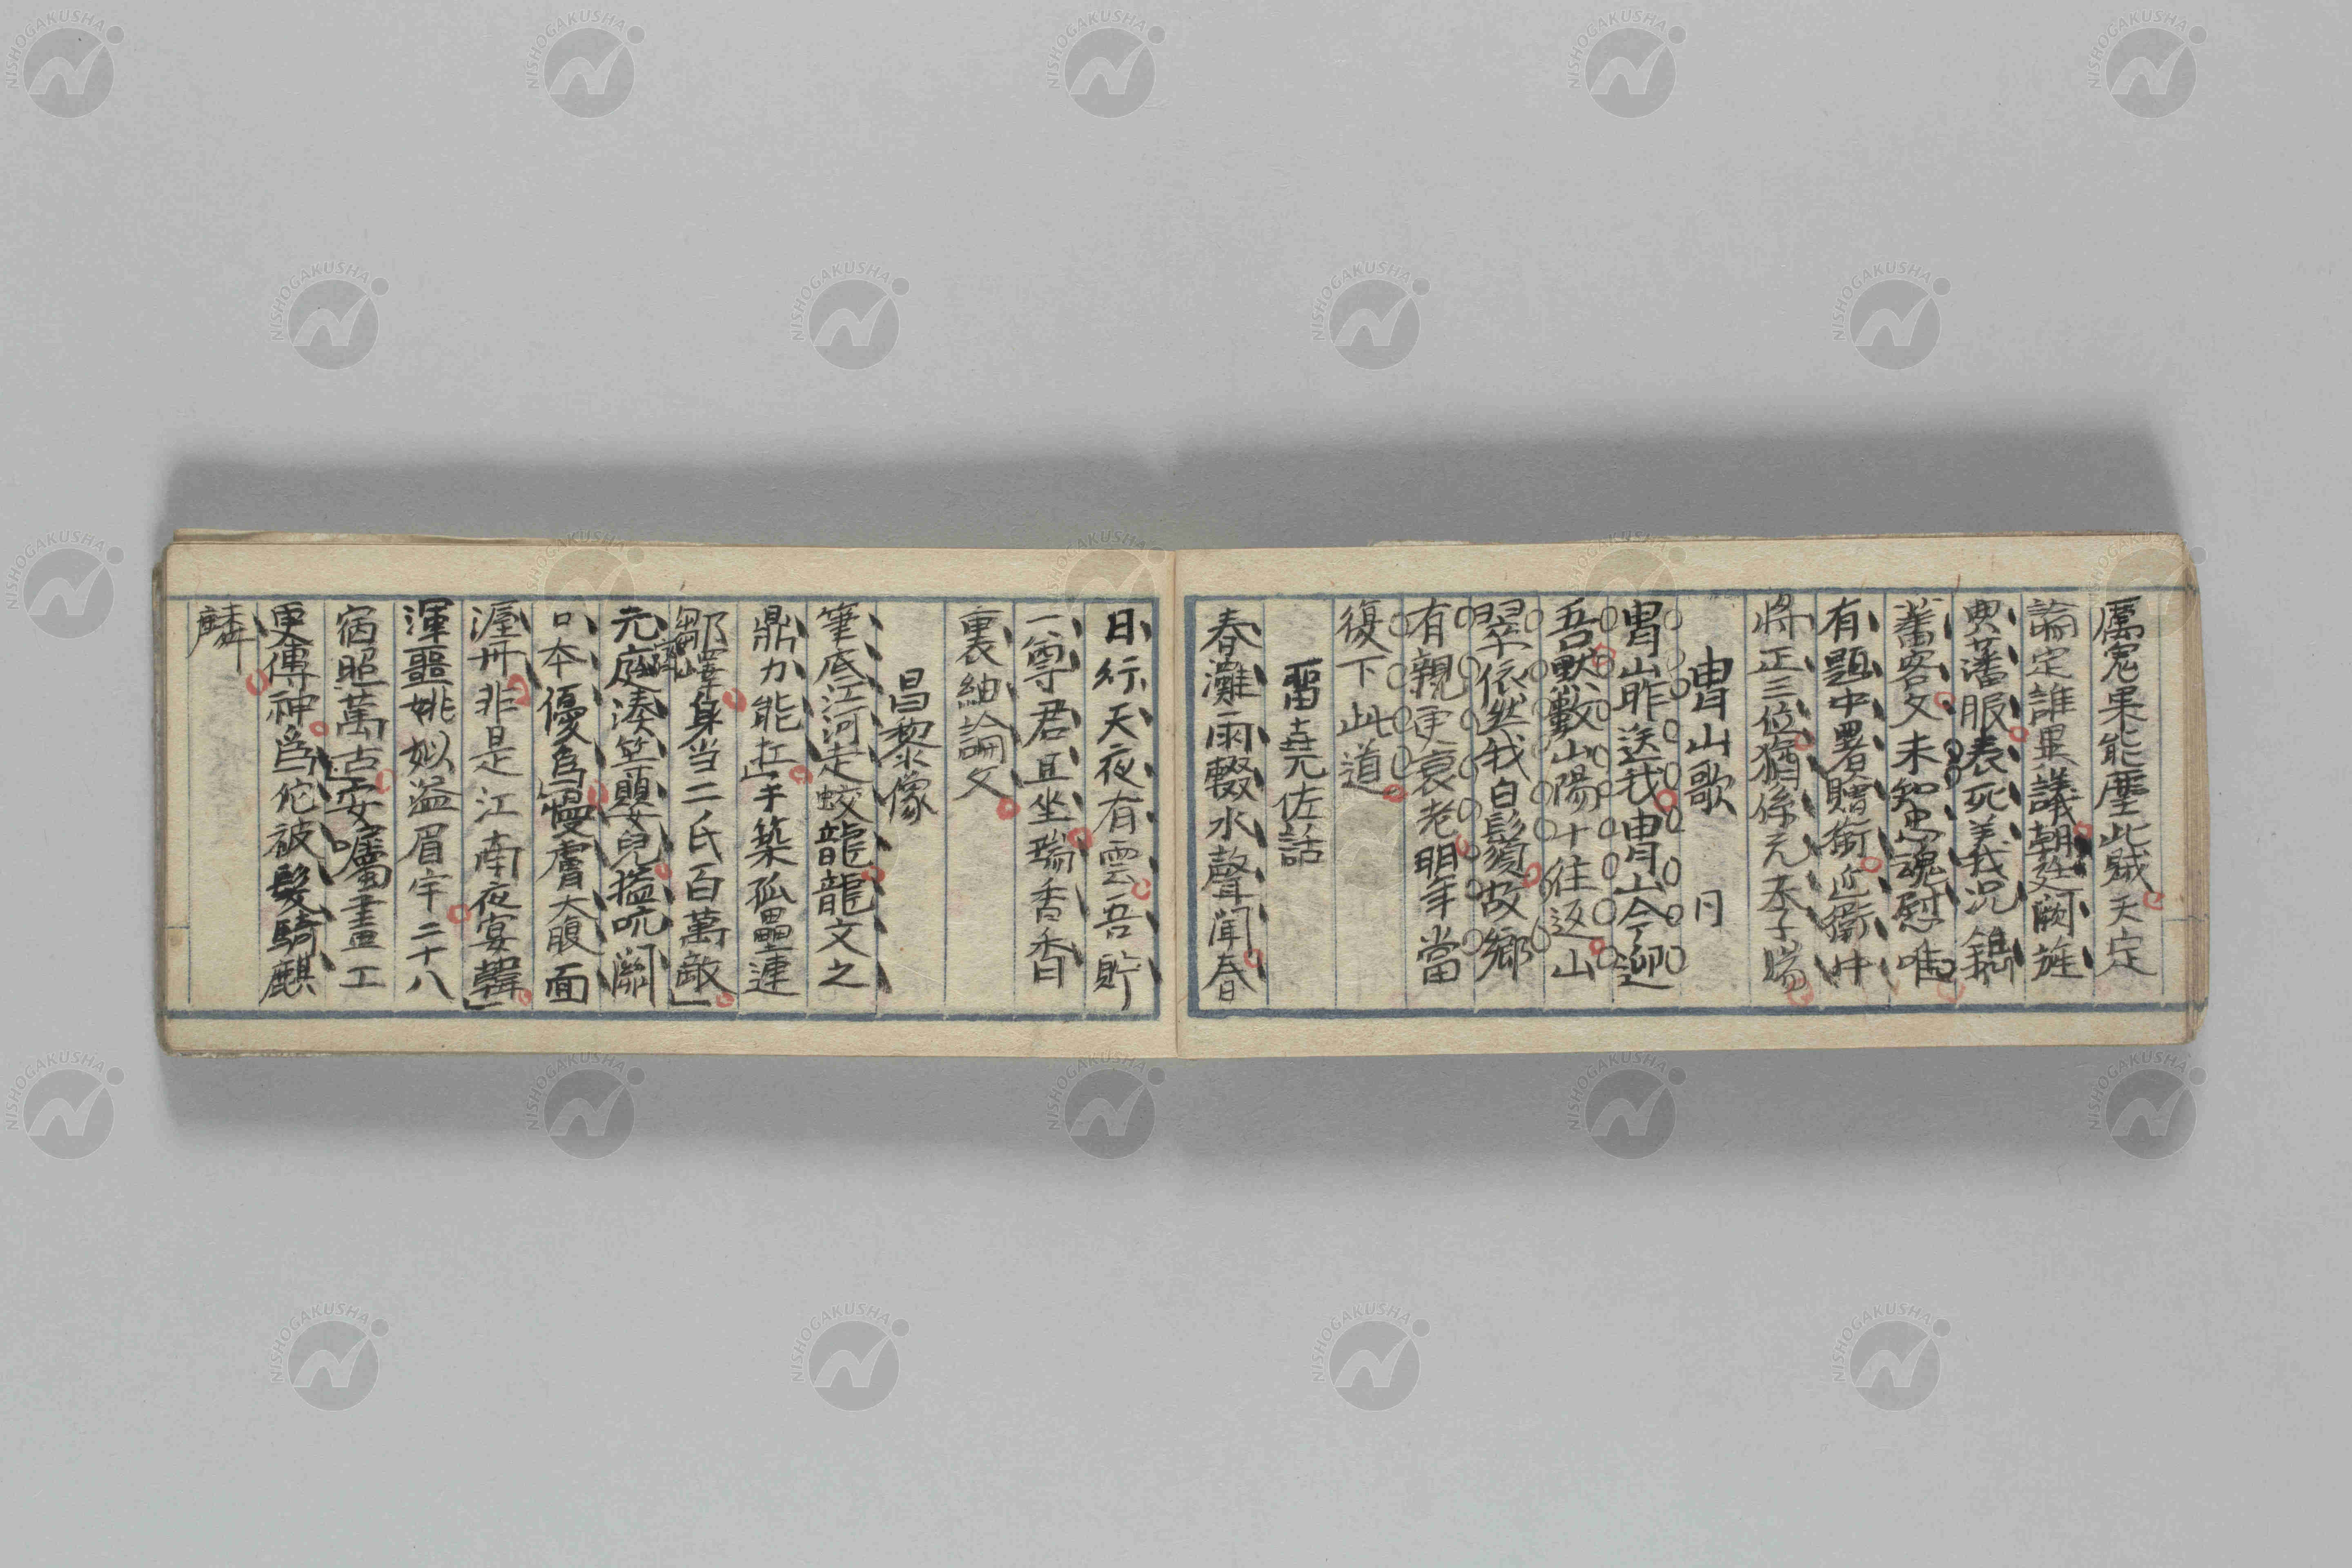 厲鬼果能塵此賊天定
論定誰異議朝廷闕旌
典藩服表死義我況鐫
舊客文未知忠魂慰唯
有題中署贈銜近衛中
將正三位猶係元
冑山歌 同
冑山昨送我冑山今迎
吾默數山陽十往返山
翠依然我白鬚故鄉
有親更衰老明年當
復下此道
畱堯佐話
春灘雨輟水聲聞春
日行天夜有雲吾貯
一尊君且坐瑞香香
裏細論文
昌黎像
筆底江河走蛟龍龍文之
鼎力能扛手築孤壘連
鄒嶧身当二氏百萬敵
元庭湊笠嬰兒搤吭鬭
口本優為慢膚大腹面
渥丹非是江南夜宴韓
渾噩姚姒溢眉宇二十八
宿照萬古安囑畫工
更傳神為佗被髮騎麒
麟
NISHOGAKUSHA